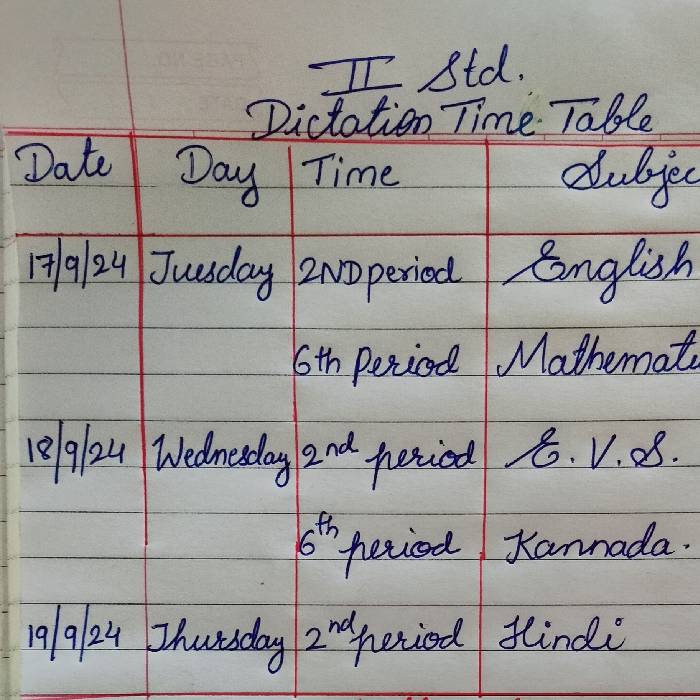 II Std.
Dictation Time Table
Date Day Time Subjec
17/9/24 Tuesday 2ND period English
6th Period Mathemat
18/9/24 Wednesday 2nd period E.V.S.
6th period Kannada.
19/9/24 Thursday 2nd period Hindi